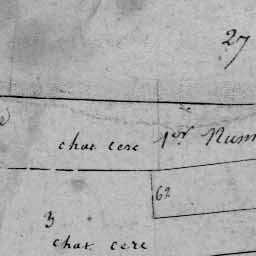 27
chat cere 1er Num
62
3
chat cere